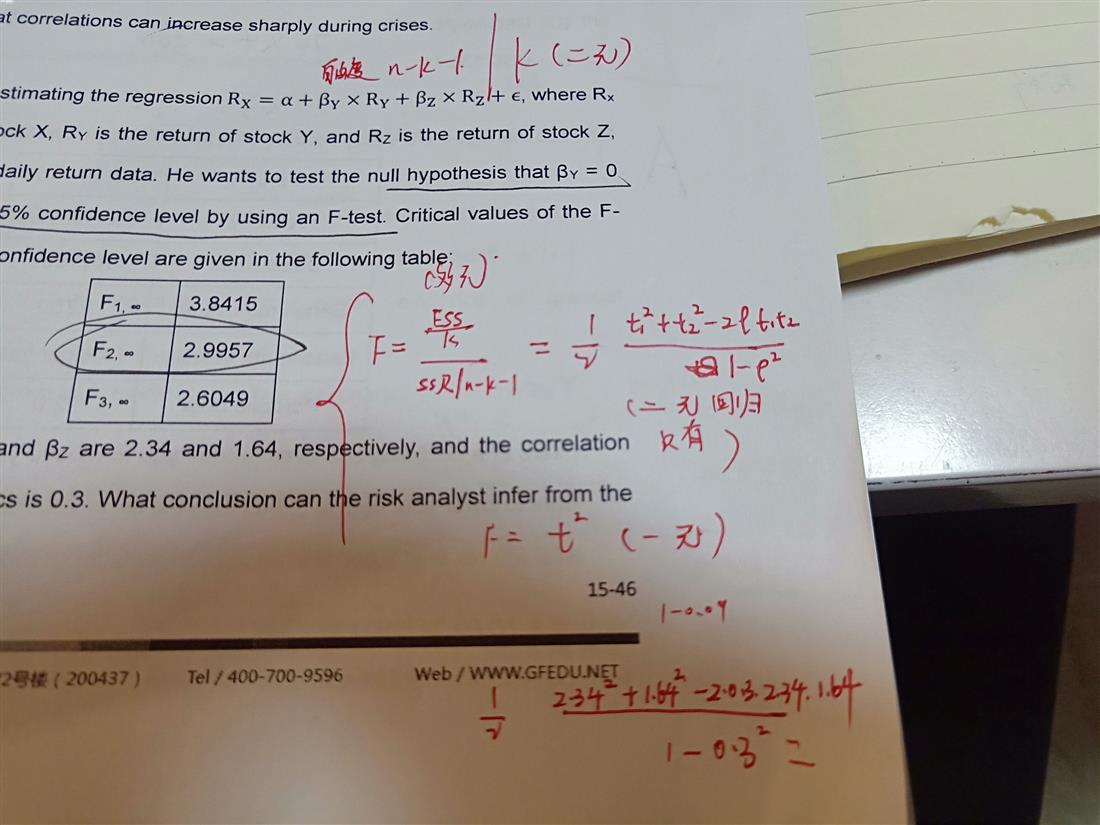 at correlations can increase sharply during crises.
自由度 n-k-1 | k (二元)
stimating the regression Rₓ = α + βY × RY + βZ × RZ + ϵ, where Rₓ
ock X, RY is the return of stock Y, and RZ is the return of stock Z,
daily return data. He wants to test the null hypothesis that βY = 0
5% confidence level by using an F-test. Critical values of the F-
onfidence level are given in the following table:
(多元)
F1, ∞ 3.8415
F2, ∞ 2.9957
F3, ∞ 2.6049
F = ESS/k / SSR/n-k-1 = 1/2 t₁²+t₂²-2ρt₁t₂ / 1-ρ²
(二元回归
只有)
and βZ are 2.34 and 1.64, respectively, and the correlation
cs is 0.3. What conclusion can the risk analyst infer from the
F = t² (一元)
15-46
1-0.09
2号楼（200437） Tel / 400-700-9596 Web / WWW.GFEDU.NET
1/2 2.34²+1.64²-2·0.3·2.34·1.64 / 1-0.3² =